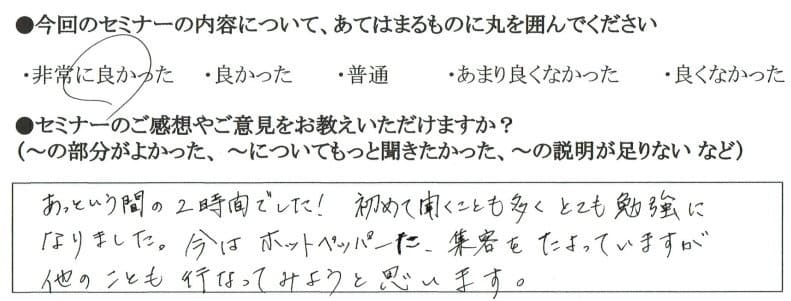 ●今回のセミナーの内容について、あてはまるものに丸を囲んでください
・非常に良かった ・良かった ・普通 ・あまり良くなかった ・良くなかった
●セミナーのご感想やご意見をお教えいただけますか？
（～の部分がよかった、～についてもっと聞きたかった、～の説明が足りない など）
あっという間の2時間でした! 初めて聞くことも多くとても勉強に
なりました。今はホットペッパーに、集客をたよっていますが
他のことも行なってみようと思います。